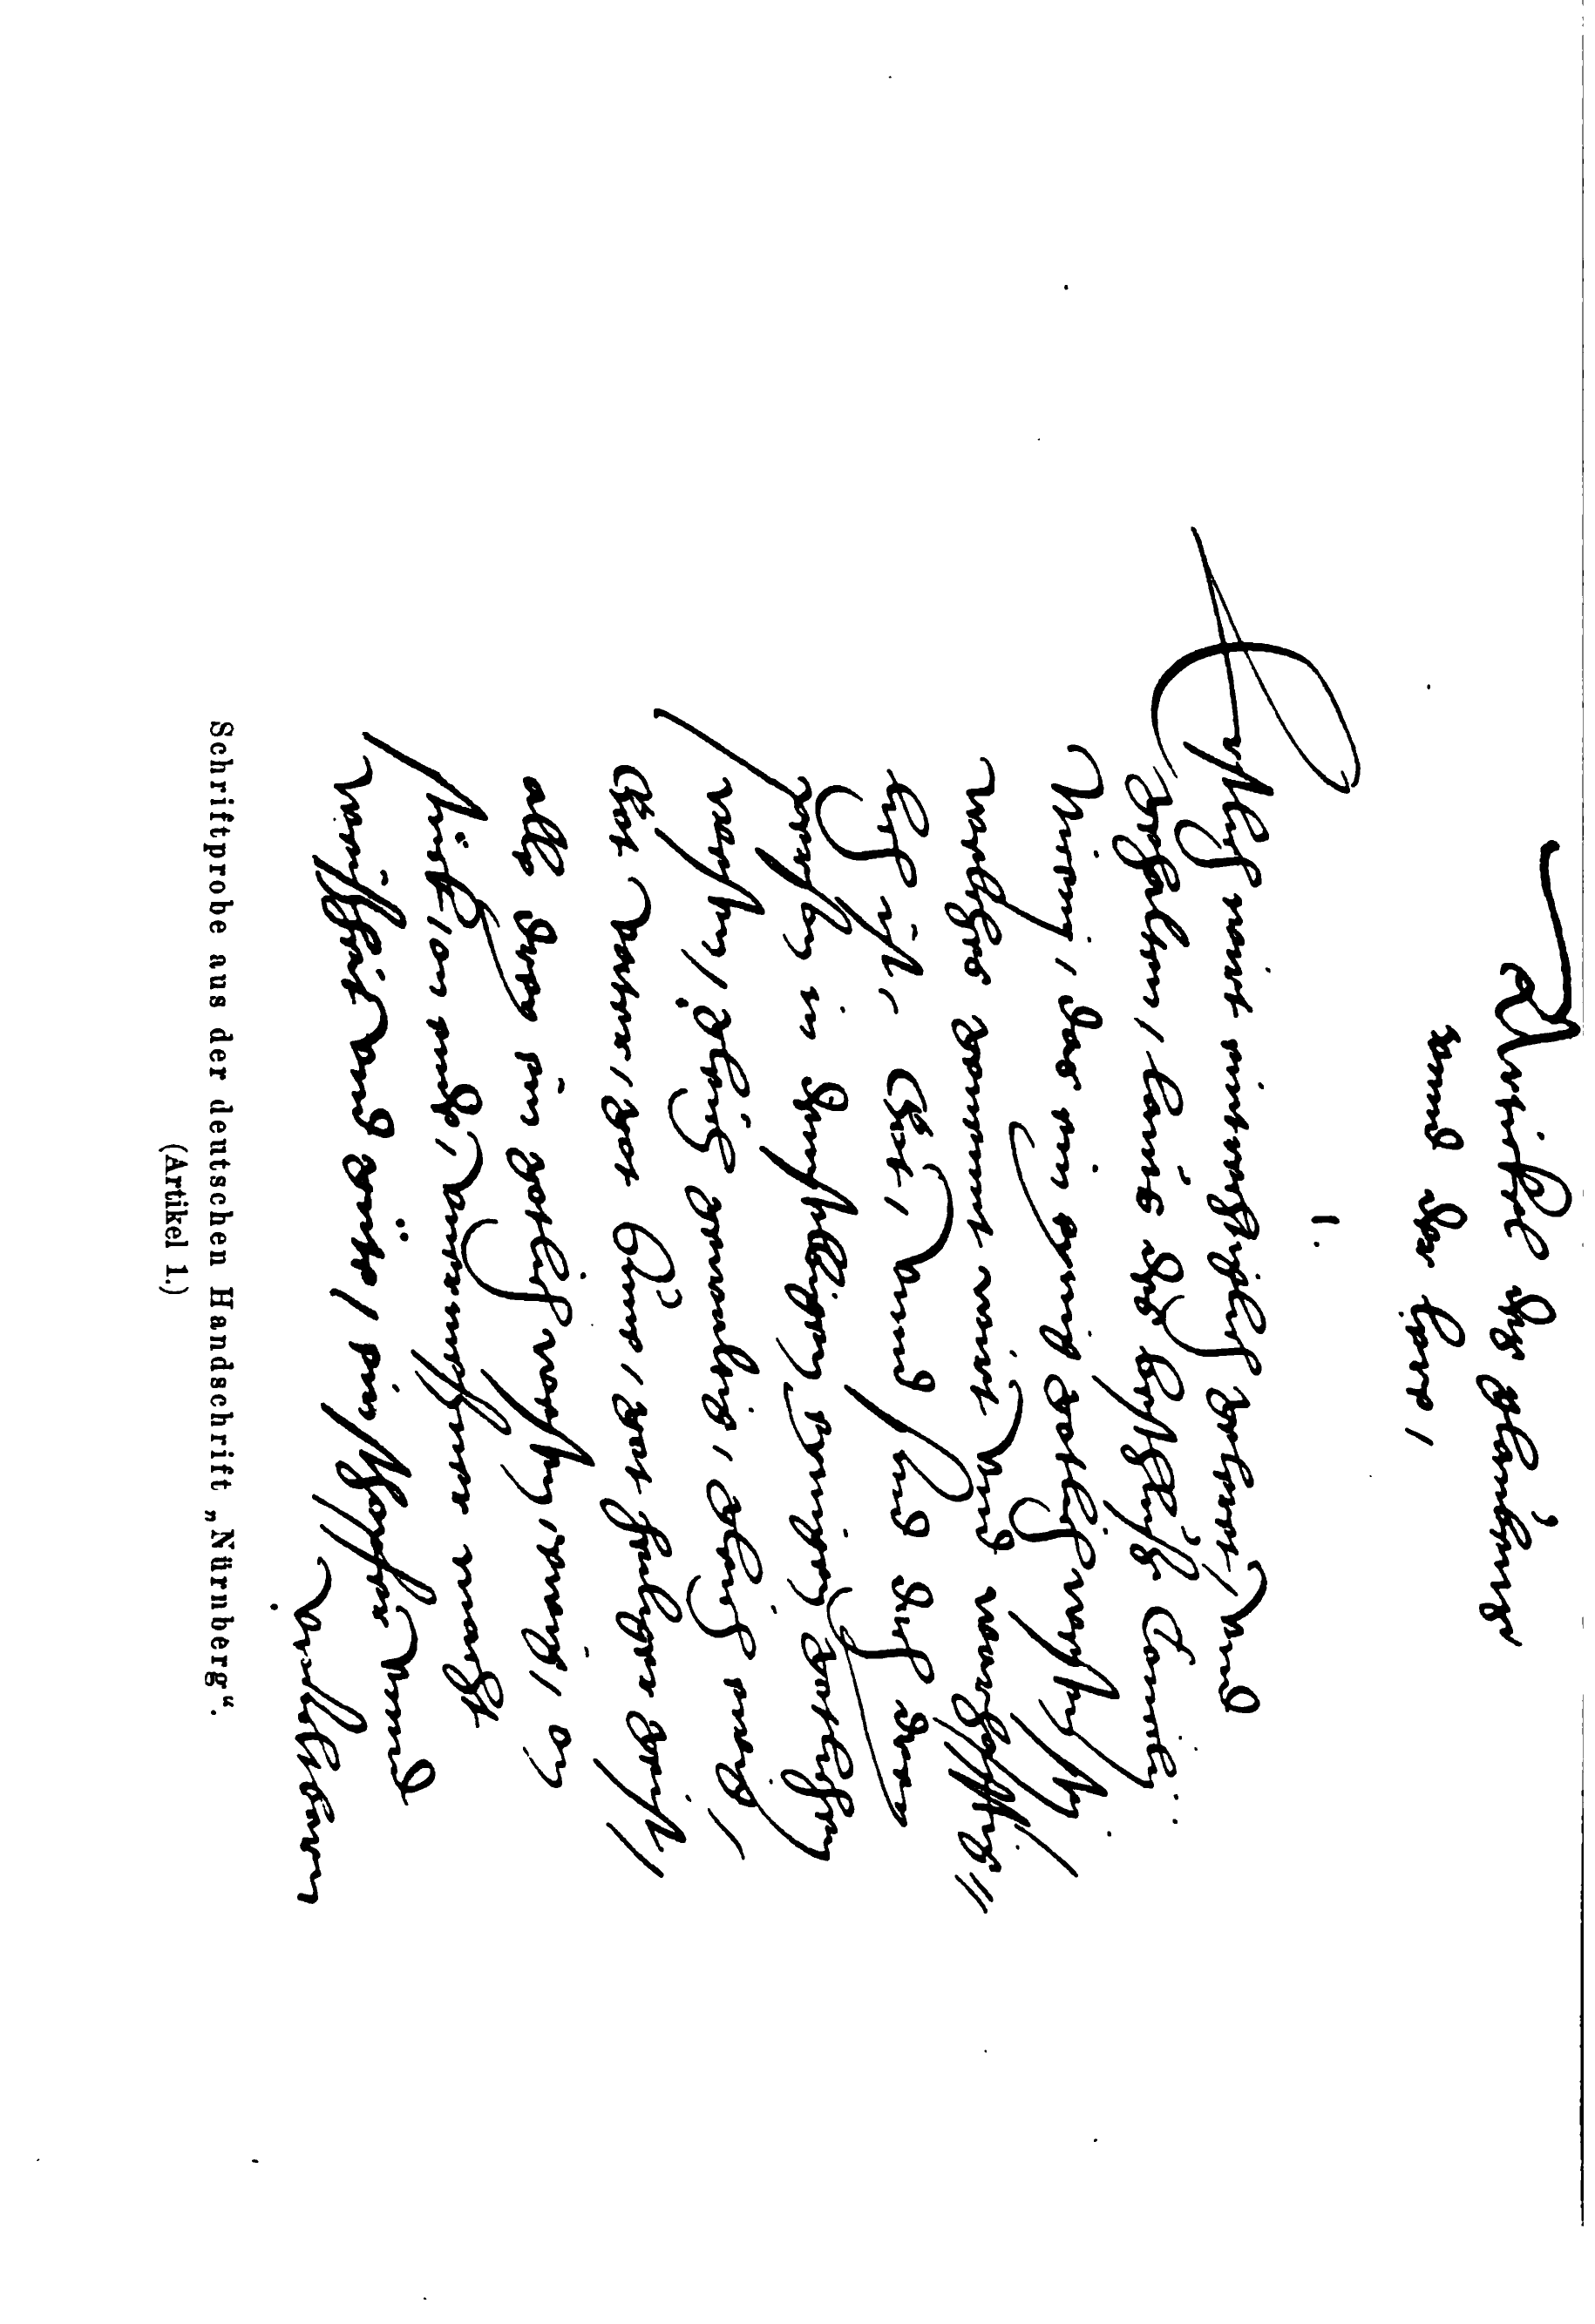 Artickel des glaubens
vnnd der lere,
1.
Erstlich wirt eintrechtiglich gelernt, vnd
gehalten, lauts des beschluss Concilij
Niceni, das ein eynig gotlich wesen sey,
welchs genennt wirt vnd warhafftig
lich ist, Got, vnnd sind doch drey
person in demselbigen eynigen gotlichen
wesen, gleich gewaltig, gleich ewig,
Got vatter, got Sune, got heyliger geist,
alle drey ein gotlich wesen, ewig, on
stück, on ende, vnermessner macht
weißheit vnd güte, ein schopffer vnnd
erhalter
Schriftprobe aus der deutschen Handschrift „Nürnberg“.
(Artikel 1.)